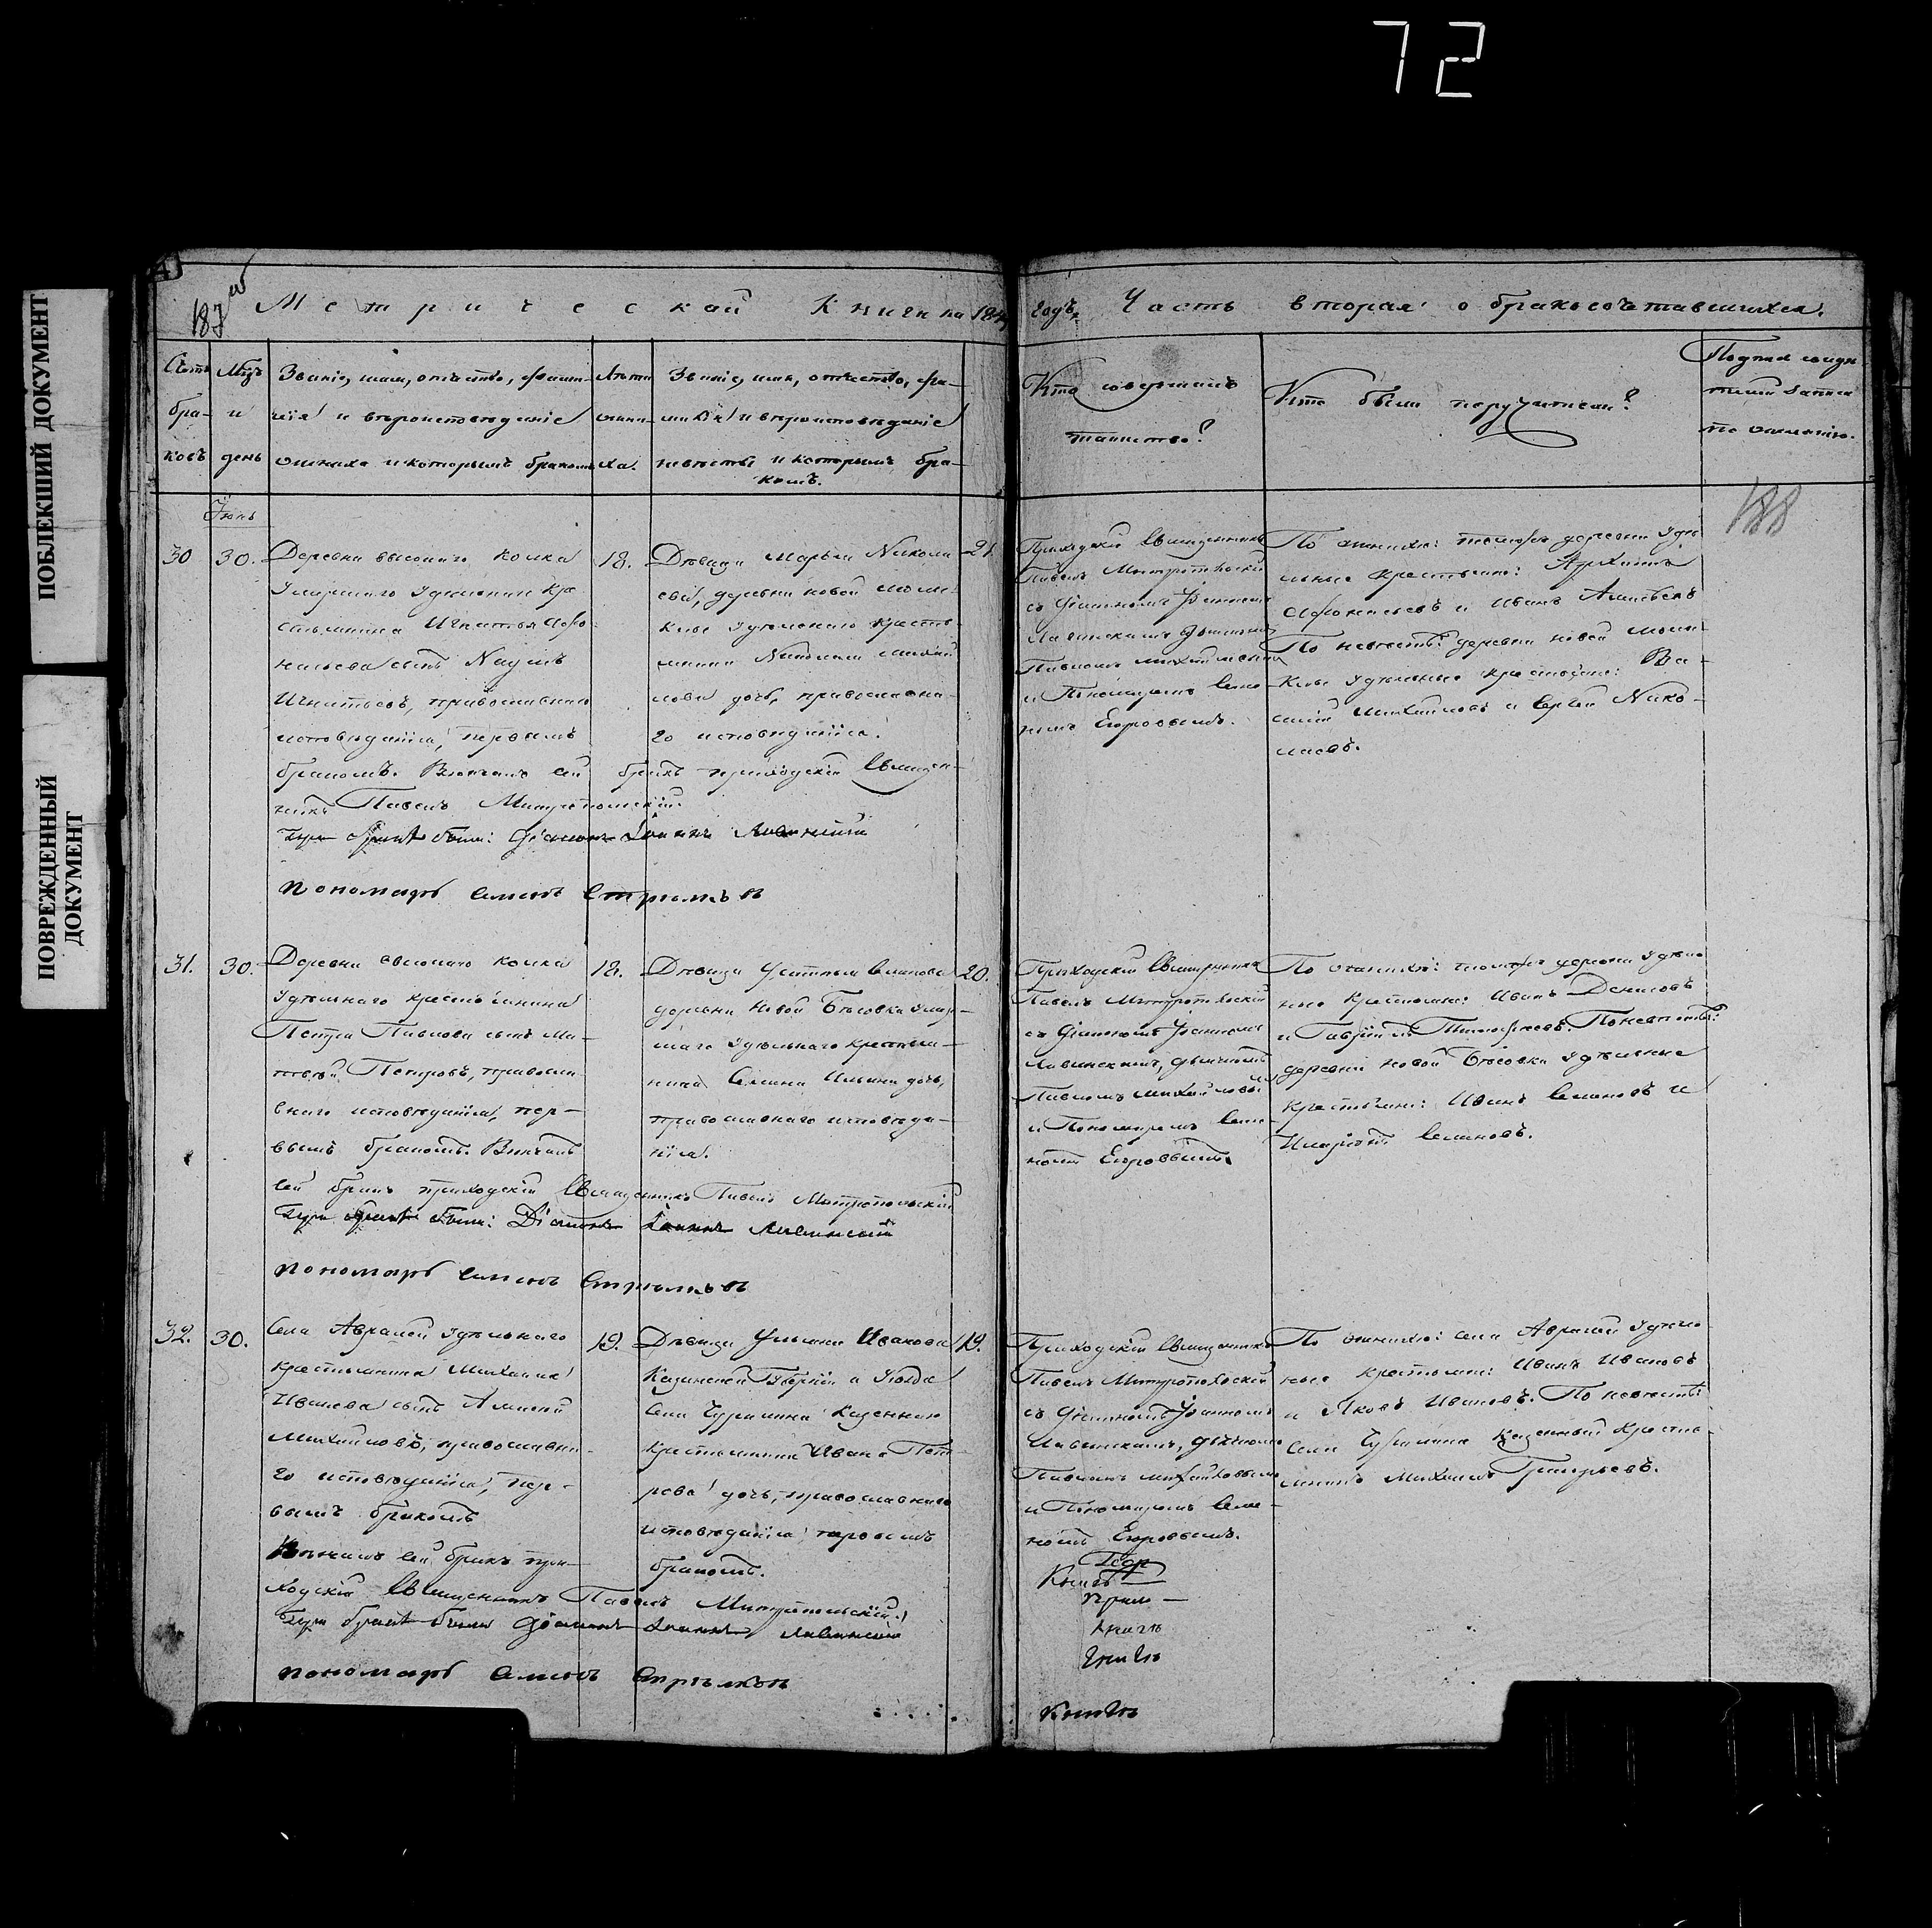 72
ПОБЛЕКШИЙ ДОКУМЕНТ
ПОВРЕЖДЕННЫЙ
ДОКУМЕНТ
187
Метрической Книги на 184
годъ, Часть вторая о бракосочетавшихся.
Счетъ
бра-
ковъ
Мцъ
и
день
Званіе, имя, отчество, фами-
лія и вѣроисповѣданіе
жениха и которымъ бракомъ
Лѣта
жени-
ха.
Званіе, имя, отчество, фа-
милія и вѣроисповѣданіе
невѣсты и которымъ бра-
комъ.
Кто совершалъ
таинство?
Кто были поручители?
188
Іюнь
30
30.
Деревни высокаго колка
умершаго удѣльнаго кре
стьянина Игнатья Афо
насьева сынъ Наумъ
Игнатьевъ, православнаго
исповѣданія, первымъ
бракомъ. Вѣнчалъ сей бракъ приходскій Священ-
никъ Павелъ Митропольскій.
При бракѣ были: Діаконъ Іоаннъ
пономарь Симеонъ
18.
Дѣвица Марья Никола
ева, деревни новой
удѣльнаго кресть-
янина Николая Михай
лова дочь, православна-
го исповѣданія.
21.
Приходскій Священникъ
Павелъ Митропольскій
съ Діакономъ Іоанномъ
Павломъ Михайловымъ
и Пономаремъ Симе-
номъ Егоровымъ.
По женихѣ: тойже деревни удѣ
льные крестьяне: Архипъ
Афонасьевъ и Иванъ
По невѣстѣ: деревни новой
удѣльные крестьяне: Ва-
силій Михайловъ и Сергей Нико-
лаевъ.
31.
30.
Деревни высокаго колка
удѣльнаго крестьянина
Петра Павлова сынъ Ма-
твей Петровъ, правосла-
внаго исповѣданія, пер-
вымъ бракомъ. Вѣнчалъ
сей бракъ приходскій Священникъ Павелъ Митропольскій
При бракѣ были: Діаконъ Іоаннъ
пономарь Симеонъ
18.
Дѣвица Устинья Семенова
деревни новой Бѣсовки умер-
шаго удѣльнаго крестья-
нина Семена Ильина дочь,
православнаго исповѣда-
нія.
20.
Приходскій Священникъ
Павелъ Митропольскій
съ Діакономъ Іоанномъ
Павломъ Михайловы
и Пономаремъ Симе-
номъ Егоровымъ.
По женихѣ: тойже деревни удѣль
ные крестьяне: Иванъ Денисовъ
и Гаврійлъ Тимофеевъ. По невѣстѣ:
деревни новой Бѣсовки удѣльные
крестьяне: Иванъ Семеновъ и
Иларіонъ Семеновъ.
32.
30.
Села Авралей удѣльнаго
крестьянина Михаила
Иванова сынъ Алексей
Михайловъ, православна-
го исповѣданія, пер-
вымъ бракомъ
Вѣнчалъ сей бракъ при-
ходскій Священникъ Павелъ Митропольскій.
При бракѣ были Діаконъ Іоаннъ
пономарь Симеонъ
19.
Дѣвица Ульяна Иванова
Казанской Губерніи и Уѣзда
Села Чурилина Казеннаго
крестьянина Ивана Пет-
рова дочь, православнаго
исповѣданія первымъ
бракомъ.
19.
Приходскій Священникъ
Павелъ Митропольскій
съ Діакономъ Іоанномъ
Павломъ Михайловымъ
и Пономаремъ Симе-
номъ Егоровымъ.
По женихѣ: села Авралей удѣль
ные крестьяне: Иванъ Ивановъ
и Яковъ Ивановъ. По невѣстѣ:
Села Чурилина Казенный кресть-
янинъ Михаилъ Григорьевъ.